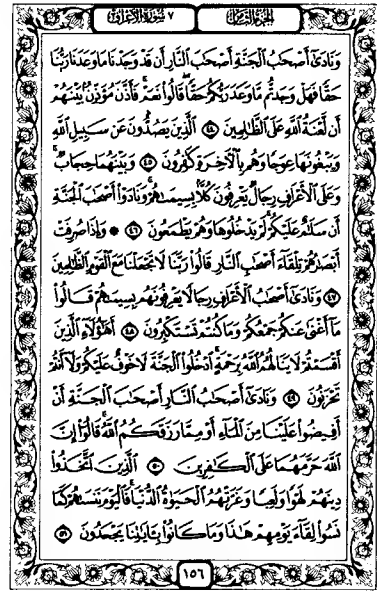 الجزء الثامن ٧ سورة الأعراف
وَنَادَىٰٓ أَصْحَٰبُ ٱلْجَنَّةِ أَصْحَٰبَ ٱلنَّارِ أَن قَدْ وَجَدْنَا مَا وَعَدَنَا رَبُّنَا
حَقًّا فَهَلْ وَجَدتُّم مَّا وَعَدَ رَبُّكُمْ حَقًّا قَالُوا۟ نَعَمْ فَأَذَّنَ مُؤَذِّنٌۢ بَيْنَهُمْ
أَن لَّعْنَةُ ٱللَّهِ عَلَى ٱلظَّٰلِمِينَ ٤٤ ٱلَّذِينَ يَصُدُّونَ عَن سَبِيلِ ٱللَّهِ
وَيَبْغُونَهَا عِوَجًا وَهُم بِٱلْءَاخِرَةِ كَٰفِرُونَ ٤٥ وَبَيْنَهُمَا حِجَابٌ
وَعَلَى ٱلْأَعْرَافِ رِجَالٌ يَعْرِفُونَ كُلًّۢا بِسِيمَىٰهُمْ وَنَادَوْا۟ أَصْحَٰبَ ٱلْجَنَّةِ
أَن سَلَٰمٌ عَلَيْكُمْ لَمْ يَدْخُلُوهَا وَهُمْ يَطْمَعُونَ ٤٦ ۞ وَإِذَا صُرِفَتْ
أَبْصَٰرُهُمْ تِلْقَآءَ أَصْحَٰبِ ٱلنَّارِ قَالُوا۟ رَبَّنَا لَا تَجْعَلْنَا مَعَ ٱلْقَوْمِ ٱلظَّٰلِمِينَ
٤٧ وَنَادَىٰٓ أَصْحَٰبُ ٱلْأَعْرَافِ رِجَالًا يَعْرِفُونَهُم بِسِيمَىٰهُمْ قَالُوا۟
مَآ أَغْنَىٰ عَنكُمْ جَمْعُكُمْ وَمَا كُنتُمْ تَسْتَكْبِرُونَ ٤٨ أَهَٰٓؤُلَآءِ ٱلَّذِينَ
أَقْسَمْتُمْ لَا يَنَالُهُمُ ٱللَّهُ بِرَحْمَةٍ ٱدْخُلُوا۟ ٱلْجَنَّةَ لَا خَوْفٌ عَلَيْكُمْ وَلَآ أَنتُمْ
تَحْزَنُونَ ٤٩ وَنَادَىٰٓ أَصْحَٰبُ ٱلنَّارِ أَصْحَٰبَ ٱلْجَنَّةِ أَنْ
أَفِيضُوا۟ عَلَيْنَا مِنَ ٱلْمَآءِ أَوْ مِمَّا رَزَقَكُمُ ٱللَّهُ قَالُوٓا۟ إِنَّ
ٱللَّهَ حَرَّمَهُمَا عَلَى ٱلْكَٰفِرِينَ ٥٠ ٱلَّذِينَ ٱتَّخَذُوا۟
دِينَهُمْ لَهْوًا وَلَعِبًا وَغَرَّتْهُمُ ٱلْحَيَوٰةُ ٱلدُّنْيَا فَٱلْيَوْمَ نَنسَىٰهُمْ كَمَا
نَسُوا۟ لِقَآءَ يَوْمِهِمْ هَٰذَا وَمَا كَانُوا۟ بِـَٔايَٰتِنَا يَجْحَدُونَ ٥١
١٥٦